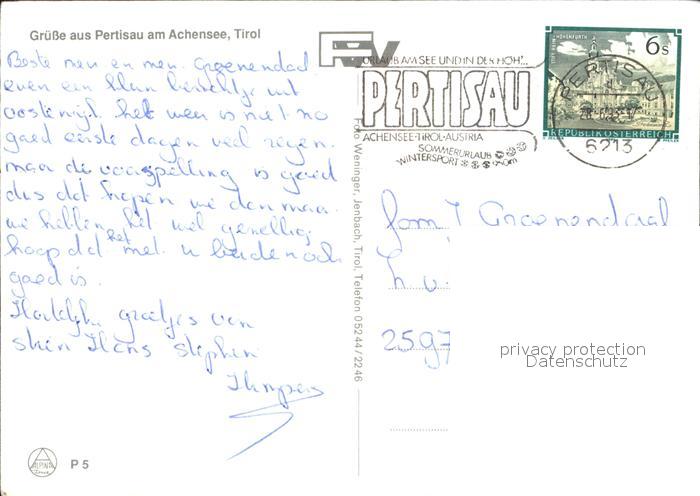 Grüße aus Pertisau am Achensee, Tirol
Beste men en men. Groenendad
even een klein berichtje uit
oostenrijk het weer is niet zo
goed eerste dagen veel regen.
maar de voorspelling is goed
dus dat hopen we dan maar
we hebben het wel gezellig
hoop dat het met u beide ook
goed is.
Hartelijke groetjes van
Hans Stephen
Kampers
P 5
ALPINA
Foto Weninger, Jenbach, Tirol, Telefon 05244/2246
URLAUB AM SEE UND IN DER HÖH'...
PERTISAU
ACHENSEE-TIROL-AUSTRIA
SOMMERURLAUB
WINTERSPORT
STIFT REIN - HOHENFURTH
6s
REPUBLIK ÖSTERREICH
PERTISAU
6213
Fam. Groenendaal
2597
privacy protection
Datenschutz